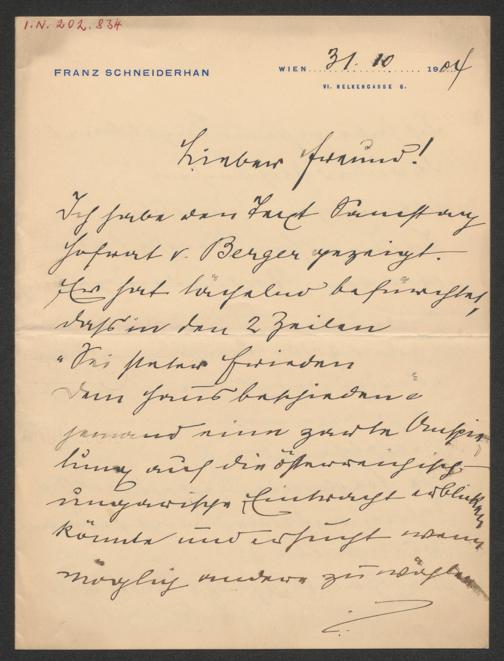 I.N. 202.834
FRANZ SCHNEIDERHAN
WIEN 31. 10 1904
VI. NELKENGASSE 6.
Lieber Freund!
Ich habe den Text Samstag
Hofrat v. Berger gezeigt.
Er hat lächelnd befürchtet,
dass in den 2 Zeilen
"Sei steter Frieden
dem Haus beschieden"
jemand eine zarte Anspie-
lung auf die österreichisch-
ungarische Eintracht erblicken
könnte und ersucht wenn
möglich andere zu wählen